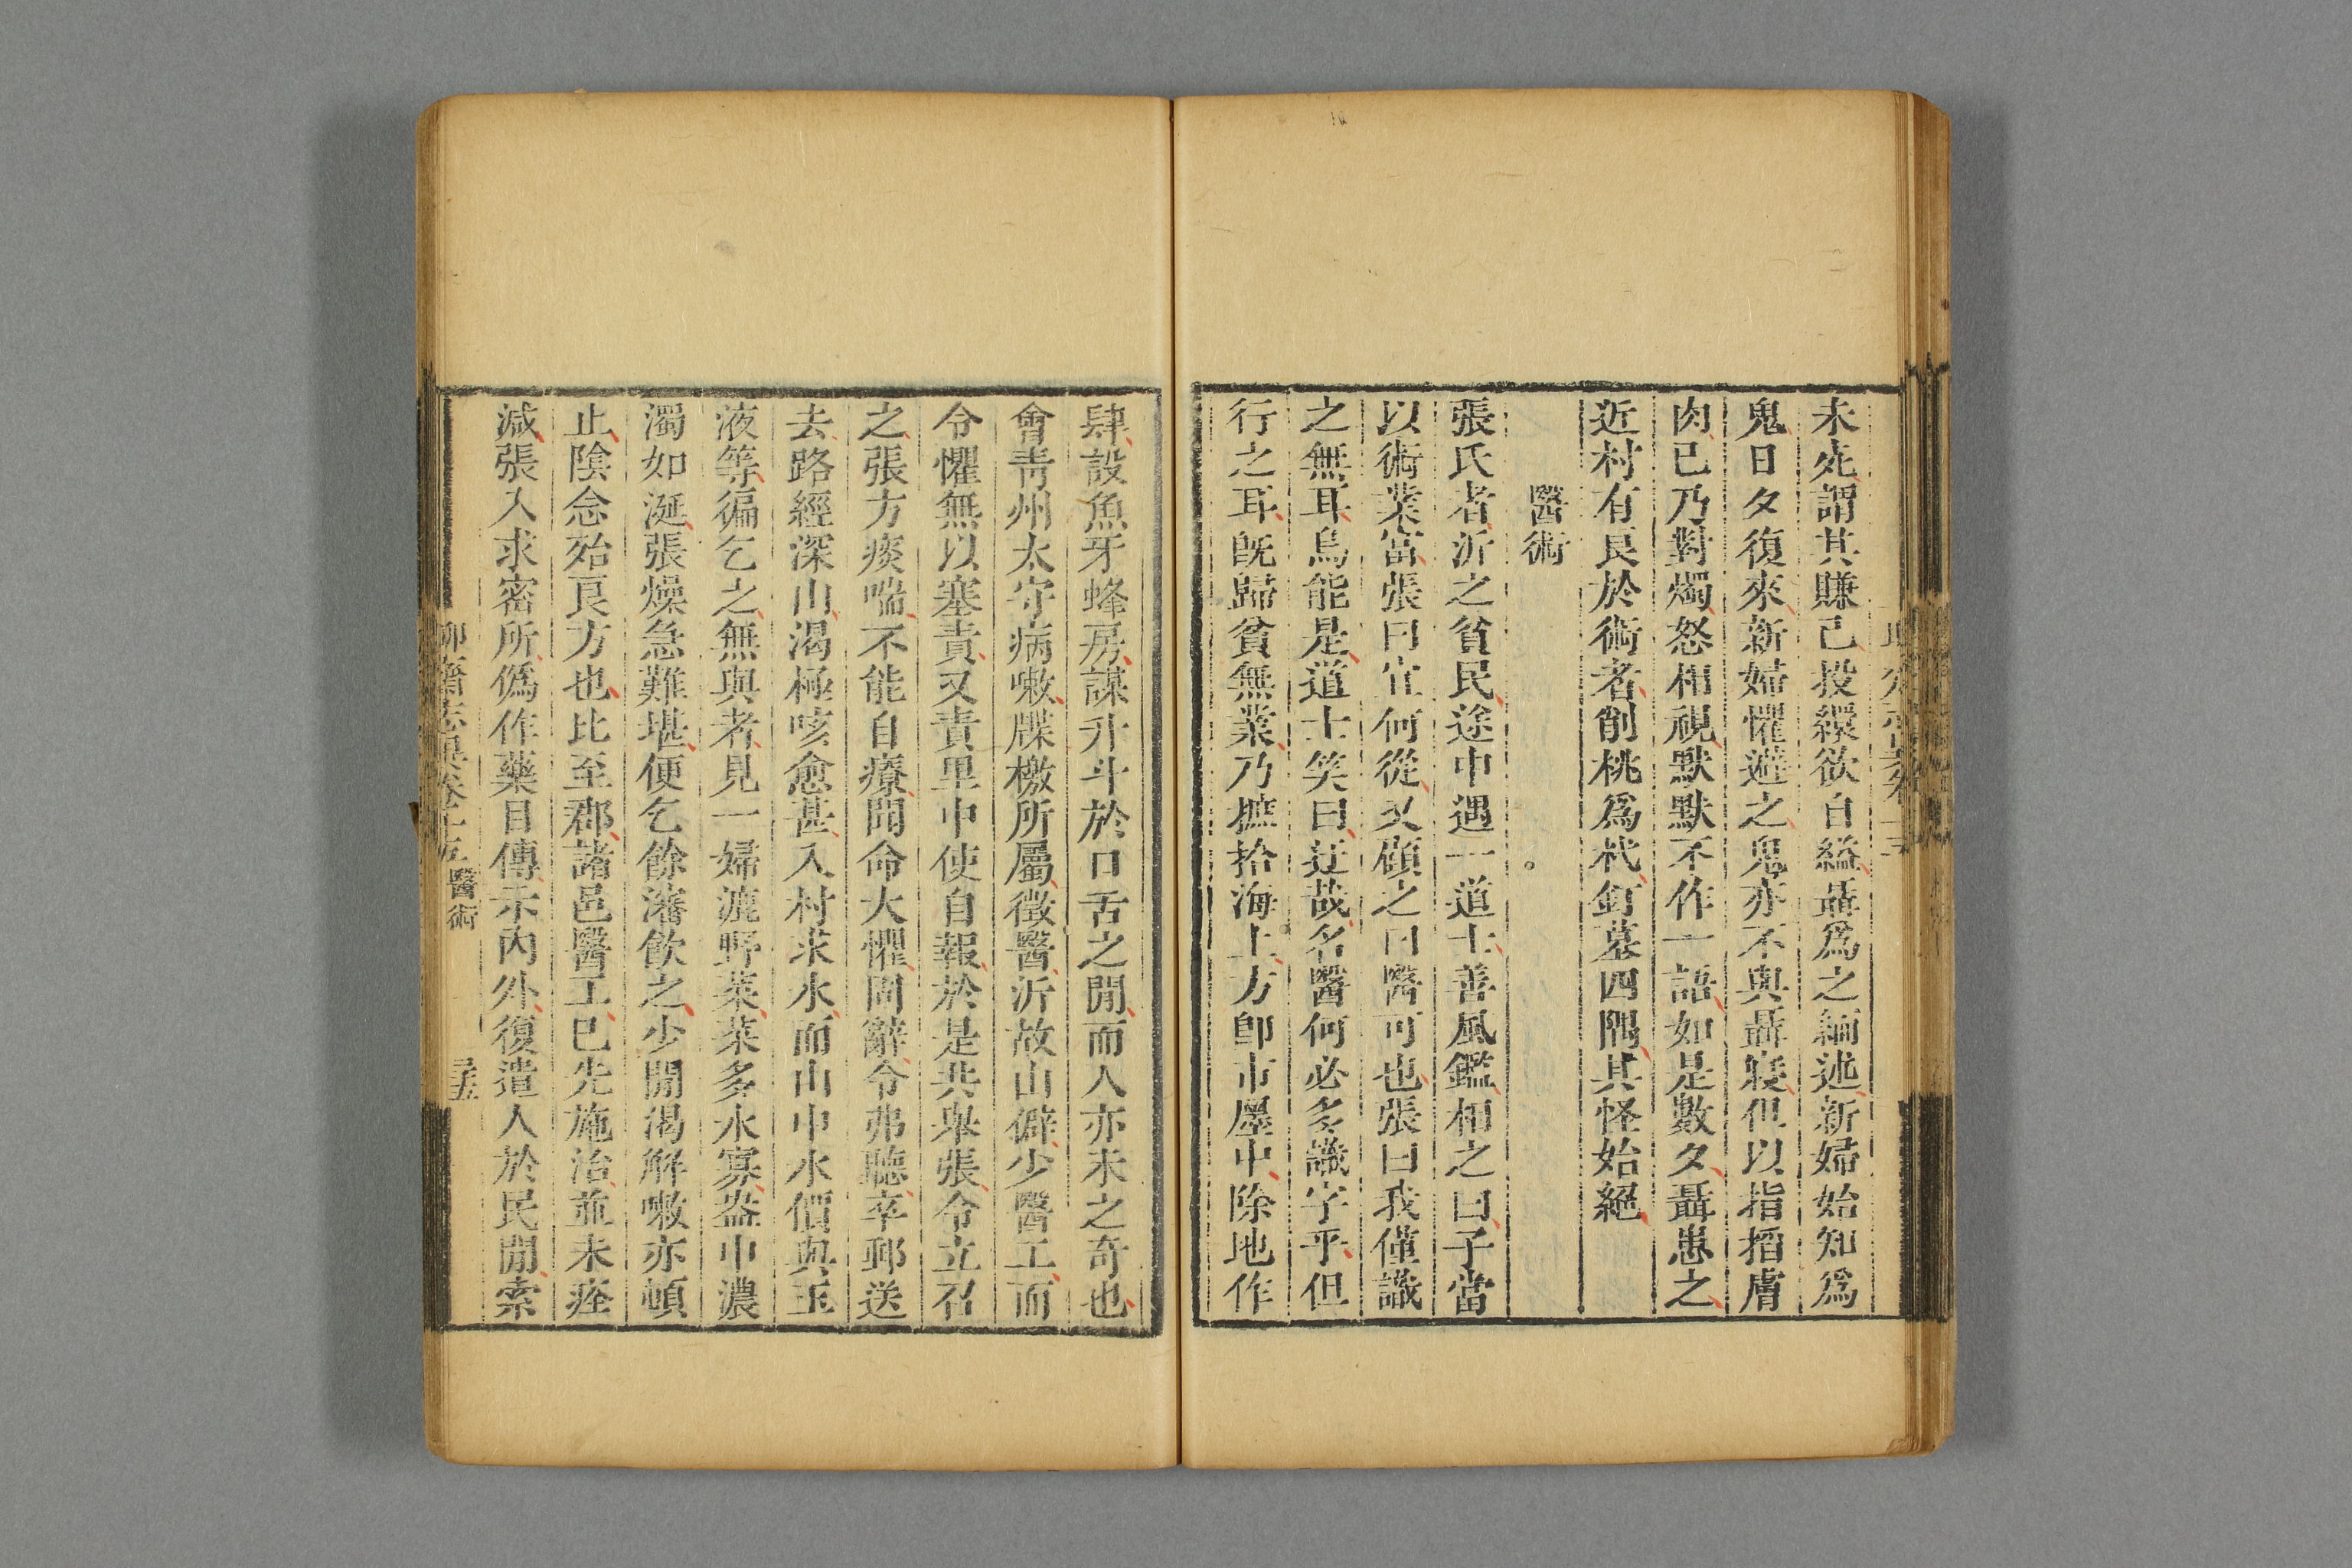 未死謂其賺己投繯欲自縊聶爲之緬述新婦始知爲
鬼日夕復來新婦懼避之鬼亦不與聶寢但以指搯膚
肉已乃對燭怒相視默默不作一語如是數夕聶患之
近村有良於術者削桃爲杙釘墓四隅其怪始絕
醫術
張氏者沂之貧民途中遇一道士善風鑑相之曰子當
以術業富張曰宜何從又顧之曰醫可也張曰我僅識
之無耳烏能是道士笑曰迂哉名醫何必多識字乎但
行之耳旣歸貧無業乃摭拾海上方卽市廛中除地作
肆設魚牙蜂房謀升斗於口舌之閒而人亦未之奇也
會靑州太守病嗽牒檄所屬徵醫沂故山僻少醫工而
令懼無以塞責又責里中使自報於是共舉張令立召
之張方痰喘不能自療聞命大懼固辭令弗聽卒郵送
去路經深山渴極咳愈甚入村求水而山中水價與玉
液等徧乞之無與者見一婦漉野菜菜多水寡盎中濃
濁如涎張燥急難堪便乞餘瀋飮之少閒渴解嗽亦頓
止陰念殆良方也比至郡諸邑醫工已先施治並未痊
減張入求密所僞作藥目傳示內外復遣人於民閒索
聊齋志異卷十五 醫術 三十五